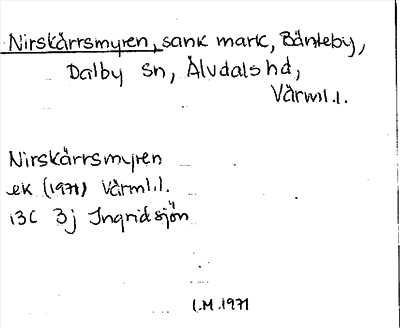 Nirskärrsmyren, sank mark, Bänteby,
Dalby sn, Älvdals hd,
Värml.l.
Nirskärrsmyren
ek (1971) Värml.l.
13C 3j Ingridsjön
I.M. 1971